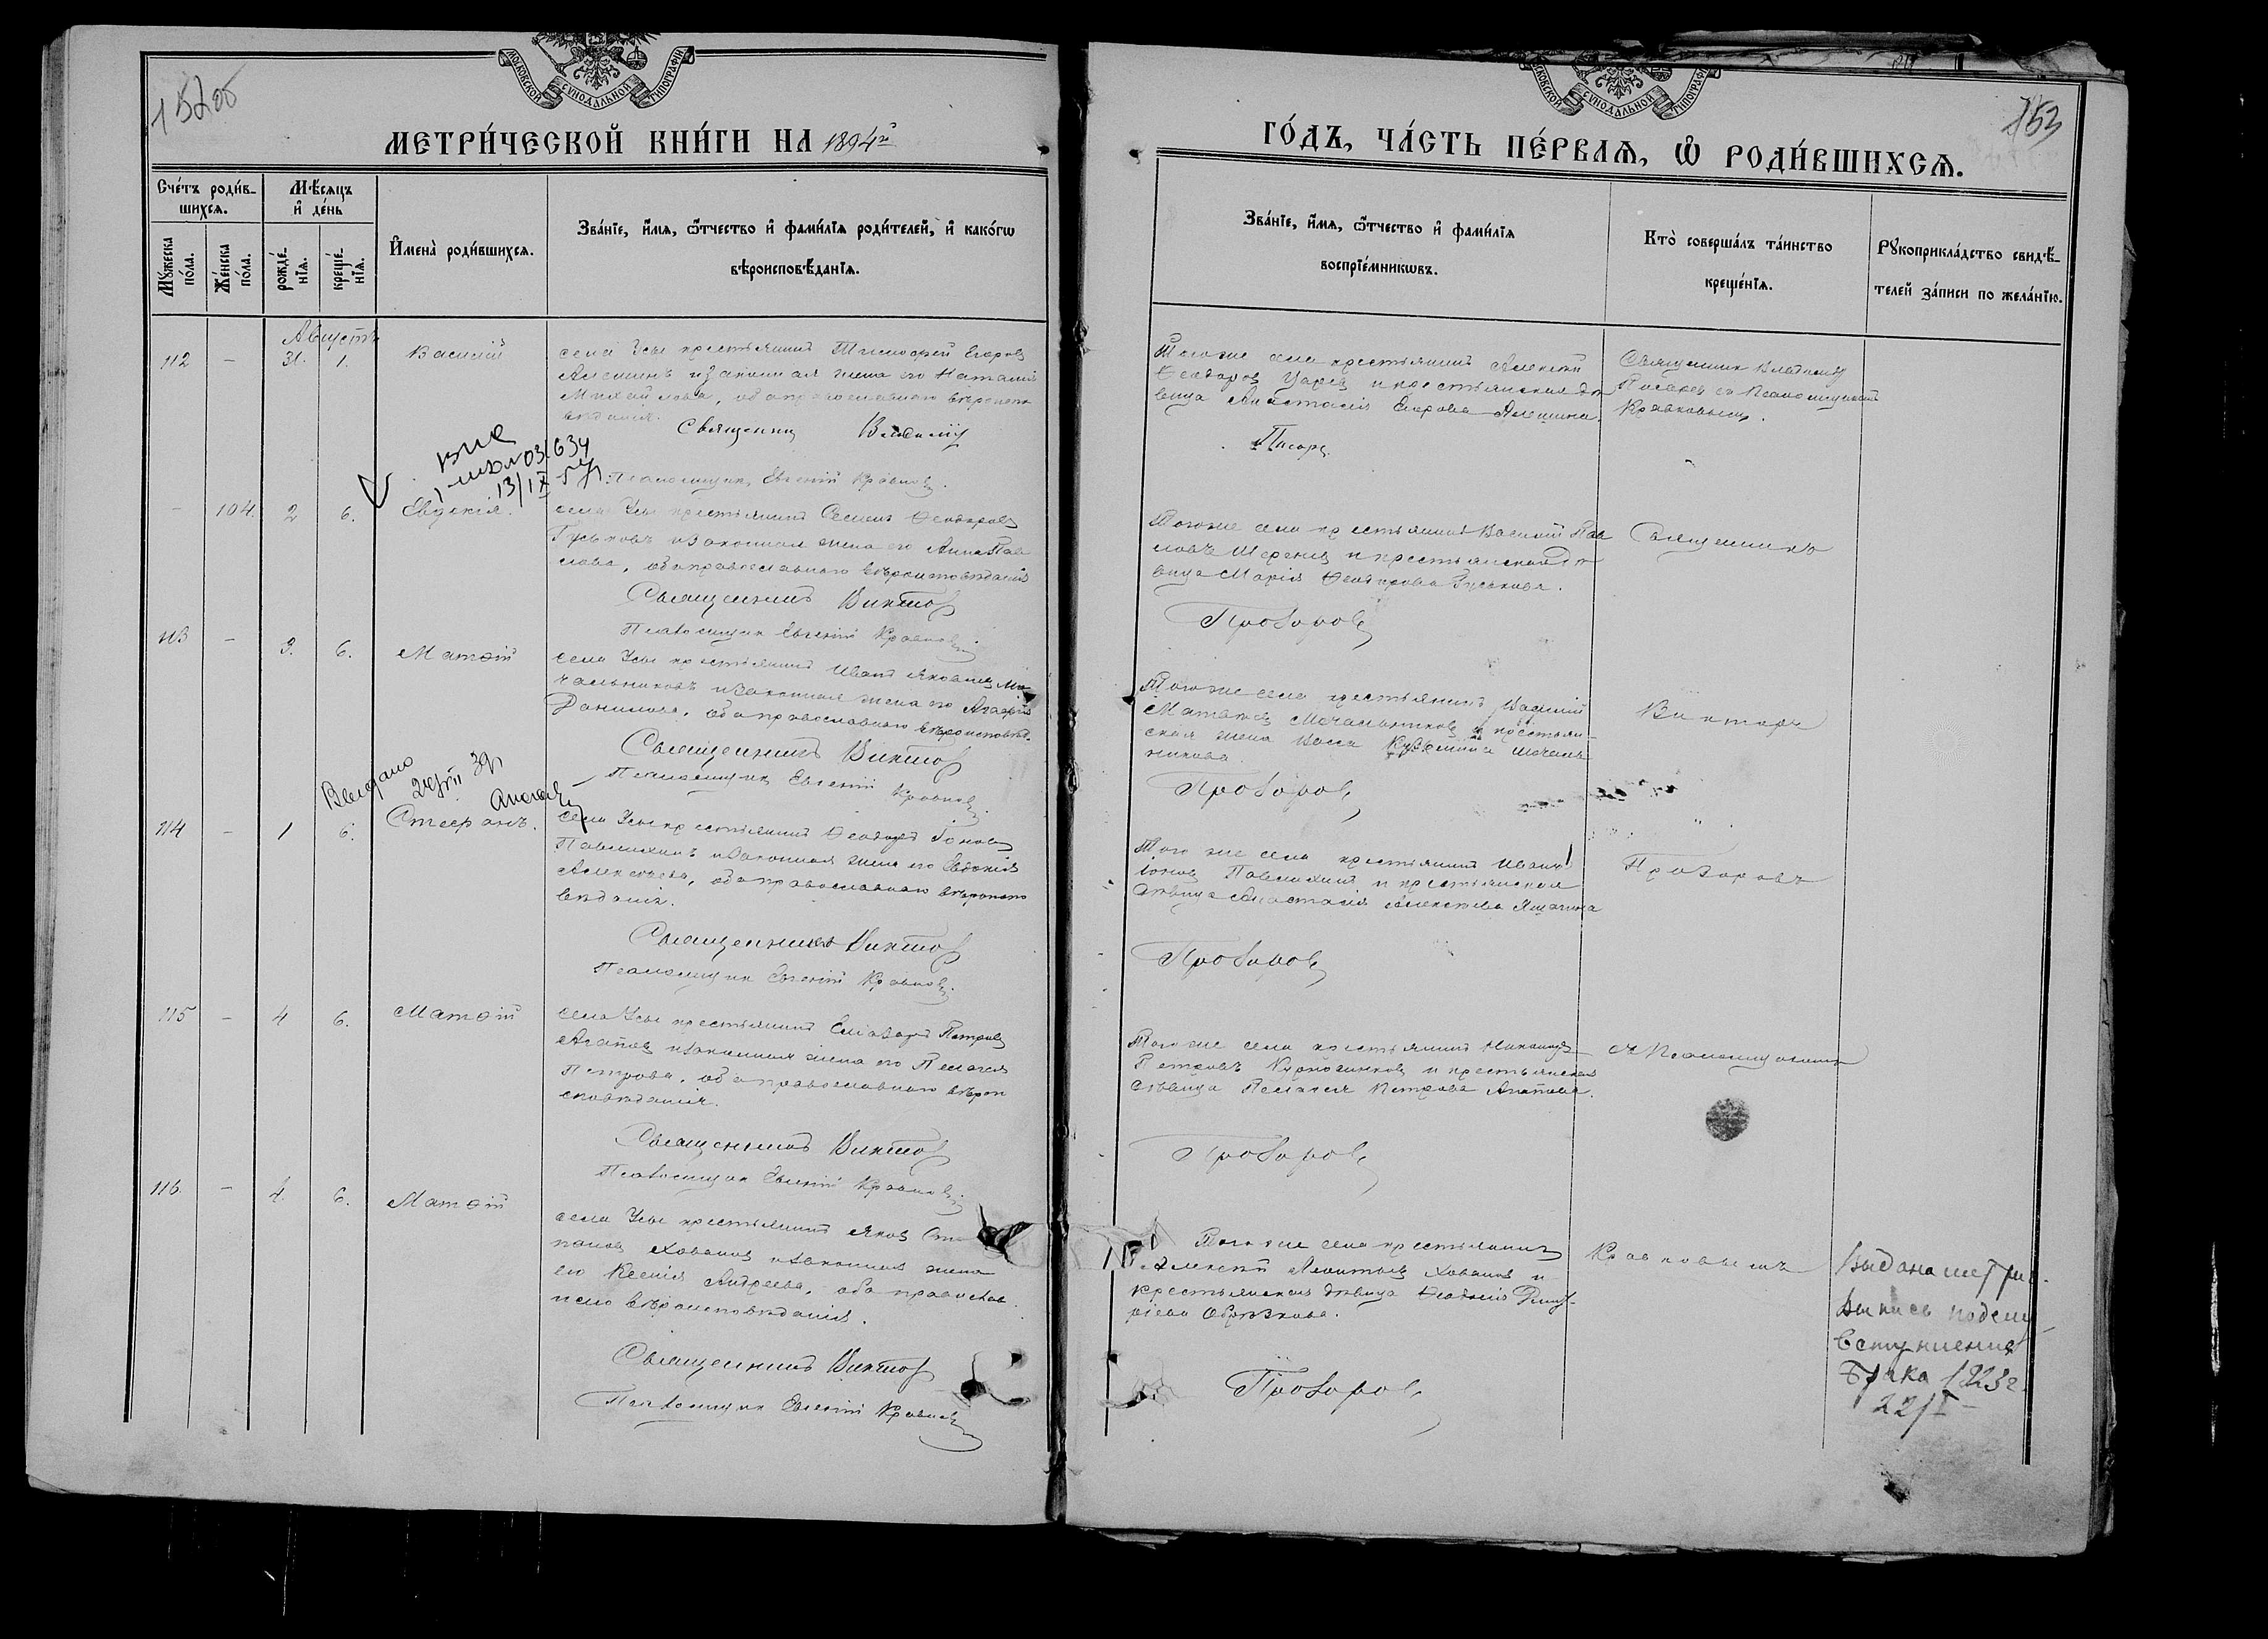 152об
МОСКОВСКОЙ СУНОДАЛЬНОЙ ТИПОГРАФІИ
МЕТРИ́ЧЕСКОЙ КНИ́ГИ НА 1894й
Сче́тъ роди́в-
шихсѧ.
Мѣ́сѧцъ
и҆ де́нь
Мꙋ́жеска
по́ла.
Же́нска
по́ла.
рожде́-
нїѧ.
креще́-
нїѧ.
И҆мена̀ роди́вшихсѧ.
Зва́нїе, и҆́мѧ, ѻ҆́тчество и҆ фами́лїѧ роди́телей, и҆ како́гѡ
вѣроисповѣ́данїѧ.
Августъ
112 - 31. 1. Василій
села Усы крестьянинъ Тимофей Егоровъ
Алешинъ и законная жена его Наталія
Михайлова, оба православнаго вѣроиспо
вѣданія.
Священникъ
031634
13/IX
Псаломщикъ Евгеній
- 104. 2 6. Евдокія.
села Усы крестьянинъ Семенъ Ѳеодоровъ
Гуськовъ и законная жена его Анна Пав
лова, оба православнаго вѣроисповѣданія
Священникъ Викторъ
Псаломщикъ Евгеній
113 - 3. 6. Матѳій
села Усы крестьянинъ Иванъ Яковлевъ Мо
чальниковъ и законная жена его Агафія
Данилова, оба православнаго вѣроисповѣд.
Священникъ Викторъ
Псаломщикъ Евгеній
Выдано
114 - 1 6. Стефанъ.
села Усы крестьянинъ Ѳеодоръ Іоновъ
Павлихинъ и законная жена его Евдокія
Алексѣева, оба православнаго вѣроиспо
вѣданія.
Священникъ Викторъ
Псаломщикъ Евгеній
115 - 4 6. Матѳій
села Усы крестьянинъ Елиазаръ Петровъ
Агаповъ и законная жена его Пелагея
Петрова, оба православнаго вѣрои
сповѣданія.
Священникъ Викторъ
Псаломщикъ Евгеній
116. - 4. 6. Матѳій
села Усы крестьянинъ Яковъ Сте
пановъ Ховановъ и законная жена
его Ксенія Андреева, оба православ
наго вѣроисповѣданія.
Священникъ Викторъ
Псаломщикъ Евгеній
153
МОСКОВСКОЙ СУНОДАЛЬНОЙ ТИПОГРАФІИ
ГО́ДЪ, ЧА́СТЬ ПЕ́РВАѦ, Ѡ҆ РОДИ́ВШИХСѦ.
Зва́нїе, и҆́мѧ, ѻ҆́тчество и҆ фами́лїѧ
воспрїе́мникѡвъ.
Кто̀ соверша́лъ та́инство
креще́нїѧ.
Рꙋкоприкла́дство свидѣ́-
телей за́писи по жела́нїю.
Того же села крестьянинъ Алексѣй
Ѳеодоровъ Царевъ и крестьянская дѣ
вица Анастасія Егорова Алешина.
Священникъ
Писаревъ съ Псаломщикомъ
Того же села крестьянинъ Василій Пав
ловъ и крестьянская дѣ
вица Марія Ѳеодорова Гуськова.
Прозоровъ
Священникъ
Того же села крестьянинъ Василій
Матвѣевъ Мочальниковъ и крестьян-
ская жена Васса Кузьмина Мочаль-
никова.
Прозоровъ
Викторъ
Того же села крестьянинъ Иванъ
Іоновъ Павлихинъ и крестьянская
дѣвица Анастасія Алексѣева
Прозоровъ
Прозоровъ
Того же села крестьянинъ
Петровъ и крестьянская
дѣвица Пелагея Петрова Агапова.
Прозоровъ
съ Псаломщикомъ
Того же села крестьянинъ
Алексѣй Леонтьевъ Ховановъ и
крестьянская дѣвица Ѳеодосія Дмит-
ріева Обрѣзкова.
Прозоровъ
Выдана метрич.
выпись
вступления
брака 1923г.
22/I